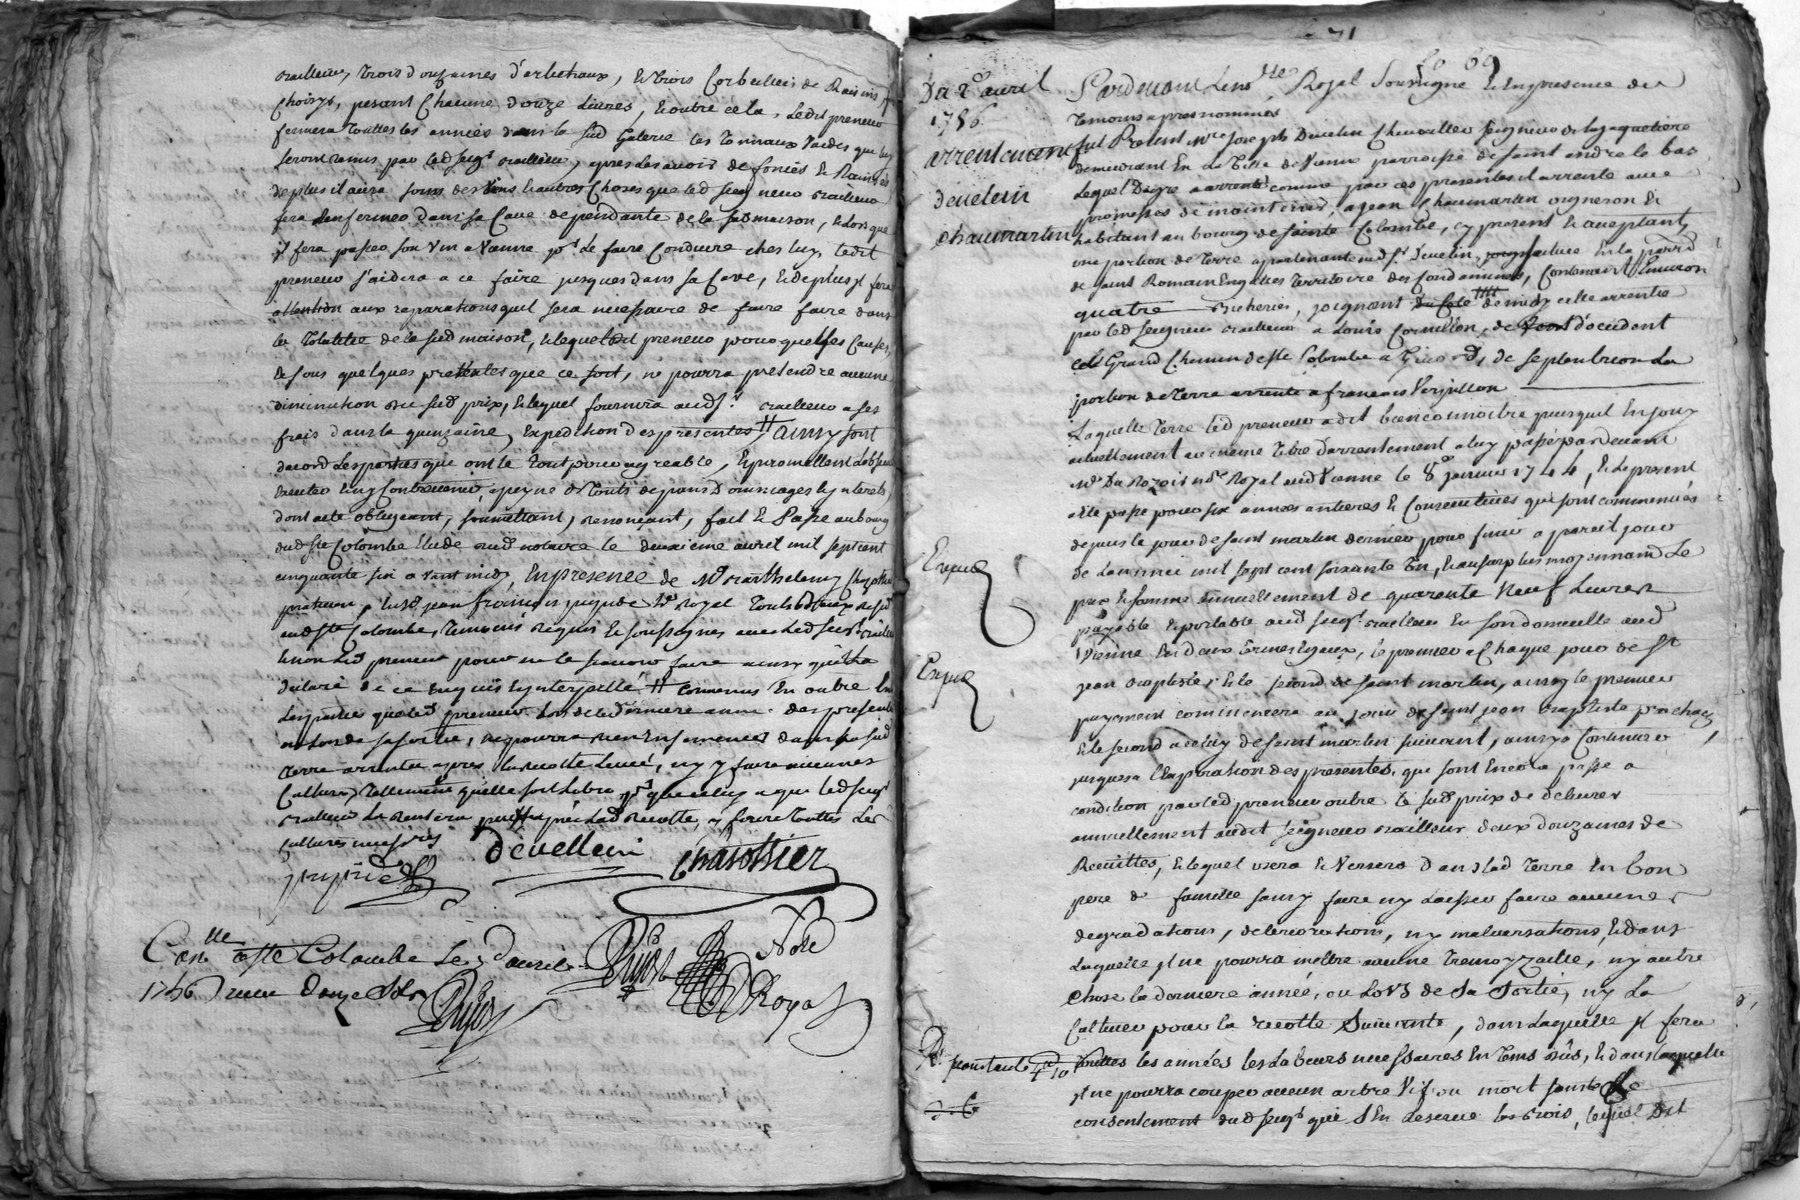 trois douzaines d'artichaux, & trois Corbeilles de Raisins
Choisys, pesant Chacune douze Livres, & outre cela, Ledit preneur
fermera touttes les années dans la sud Galerie les Tonnaux Vuides que luy
seront remis par led seigr , apres les avoir de foncés &
de plus il aura soins des Vins & autres Choses que led seigneur
fera Renfermer dans sa Cave dependante de la sud maison, & Lorsque
il fera passer son Vin a Vienne pr Le faire Conduire ches luy, ledit
preneur s'aidera a ce faire jusques dans sa Cave, & de plus il fera
attention aux reparations quil sera necessaire de faire faire dans
la Totalitée de la sud maison, & lequel dit preneur pour quelques Causes,
& sous quelques pretextes que ce soit, ne pourra pretendre aucune
diminution du sud prix, & lequel fournira audsr. a ses
frais dans la quinzaine, Expedition des presentes # ainsy sont
dacord Les parties que ont le tout pour agreable, & promettent
a peyne de touts depans Dommages & jnterets
dont acte obligeant, soumettant, renonçant, fait & Passé au bourg
dud Ste Colombe Etude dud notaire le deuxieme avril mil septcent
cinquante six avant midy, En presence de Mr Barthelemy
praticien, & sr jean françois Royal Touts deux
aud Ste Colombe, Temoins Requis & soussignes avec Led seigr
& non Led preneur pour ne le scavoir faire ainsy quil la
déclaré de ce enquis & jnterpellé # convenus En outre
Les parties que led preneur Lors de la derniere année des presentes
ou Lors de sa sortie, ne pourra rien Ensemencer dans la sud
terre arrentée apres la recolte Levée, ny y faire aucunes
Cultures, tellement quelle soit Libre pr que celuy a qui led seigr
La Remettra puisse apres Lad Recolte, y faire touttes Les
Cultures necessaires
dévellein
Chanossier
Conlle a Ste Colombe Le 9 davril
1756 Reçu Douze sols
Nore
Royal
71
69
Du 2e avril
1756
arrentement
dévelein
Chaumartin
Pardevant Le nore Royal soussigné & En presence des
Temoins apres nommés
fut Present Mre joseph Develin Chevallier seigneur de la jaquetiere
demeurant En La Ville de Vienne parroisse de saint andré le bas
Lequel Degré a arrenté comme par ces presentes il arrente avec
promesses de maintenir, a jean Chaumartin vigneron &
habitant au bourg de sainte Colombe, cy present & acceptant,
une portion de terre apartenante aud sr Develin, situee En la parroisse
de saint Romain En galles Territoire des Condamines, Contenant Environ
quatre Bicherées, joignant du Coté de midy celle arrentée
par led seigneur a Louis Cornillon, de d'occident
Le Grand Chemin de Ste Colombe a Givord, de septentrion La
portion de terre arrentée a francois Verpillon
Laquelle terre led preneur a dit bien connoitre puisquil En jouy
actuellement au meme titre darrentement a luy passé pardevant
Me Du Rozois nre Royal aud Vienne le 8e janvier 1744, & Le present
acte passé pour six années entieres & Consecutives qui sont commencées
depuis le jour de saint martin dernier pour finir a pareil jour
de Lannée mil sept cent soixante Un, & au surplus moyennant Le
prix & somme annuellement de quarente Neuf Livres
payable & portable aud seigr En son domicille aud
Vienne En deux termes Egaux, le premier a Chaque jour de St
jean Baptiste, & le second de saint martin, ainsy le premier
payement commencera au jour de saint jean Baptiste prochain,
& le second a celuy de saint martin suivant, ainsy a Continuer
jusques a l'Expiration des presentes, qui sont Encore passé a
condition par led preneur outre le sud prix de delivrer
annuellement audit seigneur Bailleur deux douzaines de
, & lequel usera & Versera Dans lad Terre En bon
pere de famille sans y faire ny Laisser faire aucunes
degradations, deteriorations, ny malversations, & dans
Laquelle il ne pourra mettre aucune Tremoyzaille, ny autre
chose la derniere année, ou Lors de sa sortie, ny La
Cultiver pour la recolte suivante, dans Laquelle il fera
touttes les années les Labeurs necessaires En tems dûs, & dans laquelle
il ne pourra couper aucun arbre Vif ou mort sans le
consentement dud seigr qui s'En Reserve les Bois, lequel dit